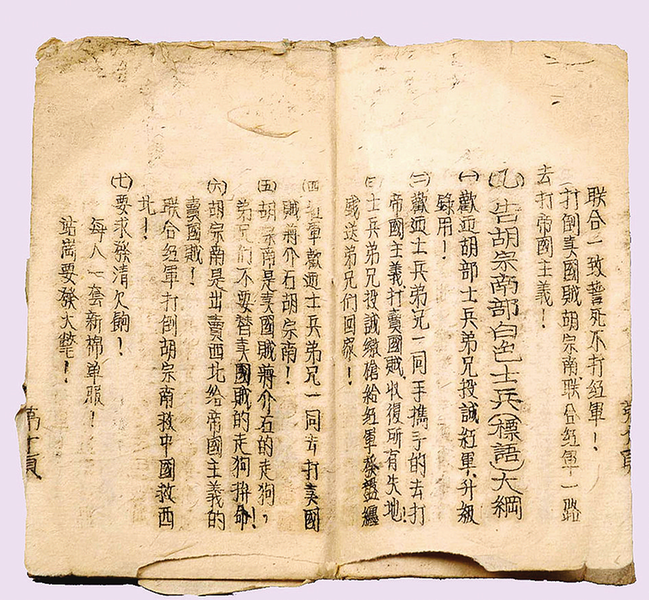 聯合一致誓死不打紅軍！
打倒賣國賊胡宗南聯合紅軍一路
去打帝國主義！
(九)告胡宗南部白色士兵(標語)大綱
(一)歡迎胡部士兵弟兄投誠紅軍，升級
錄用！
(二)歡迎士兵弟兄一同手攜手的去打
帝國主義打賣國賊收復所有失地！
(三)士兵弟兄投誠繳槍給紅軍發盤纏
送弟兄們回家！
(四)紅軍歡迎士兵弟兄一同去打賣國
賊蔣介石胡宗南！
(五)胡宗南是賣國賊蔣介石的走狗，
弟兄們不要替賣國賊的走狗拚命！
(六)胡宗南是出賣西北給帝國主義的
賣國賊！
聯合紅軍打倒胡宗南救中國救西
北！
(七)要求發清欠餉！
每人一套新棉單服！
站崗要發大氅！
第十頁